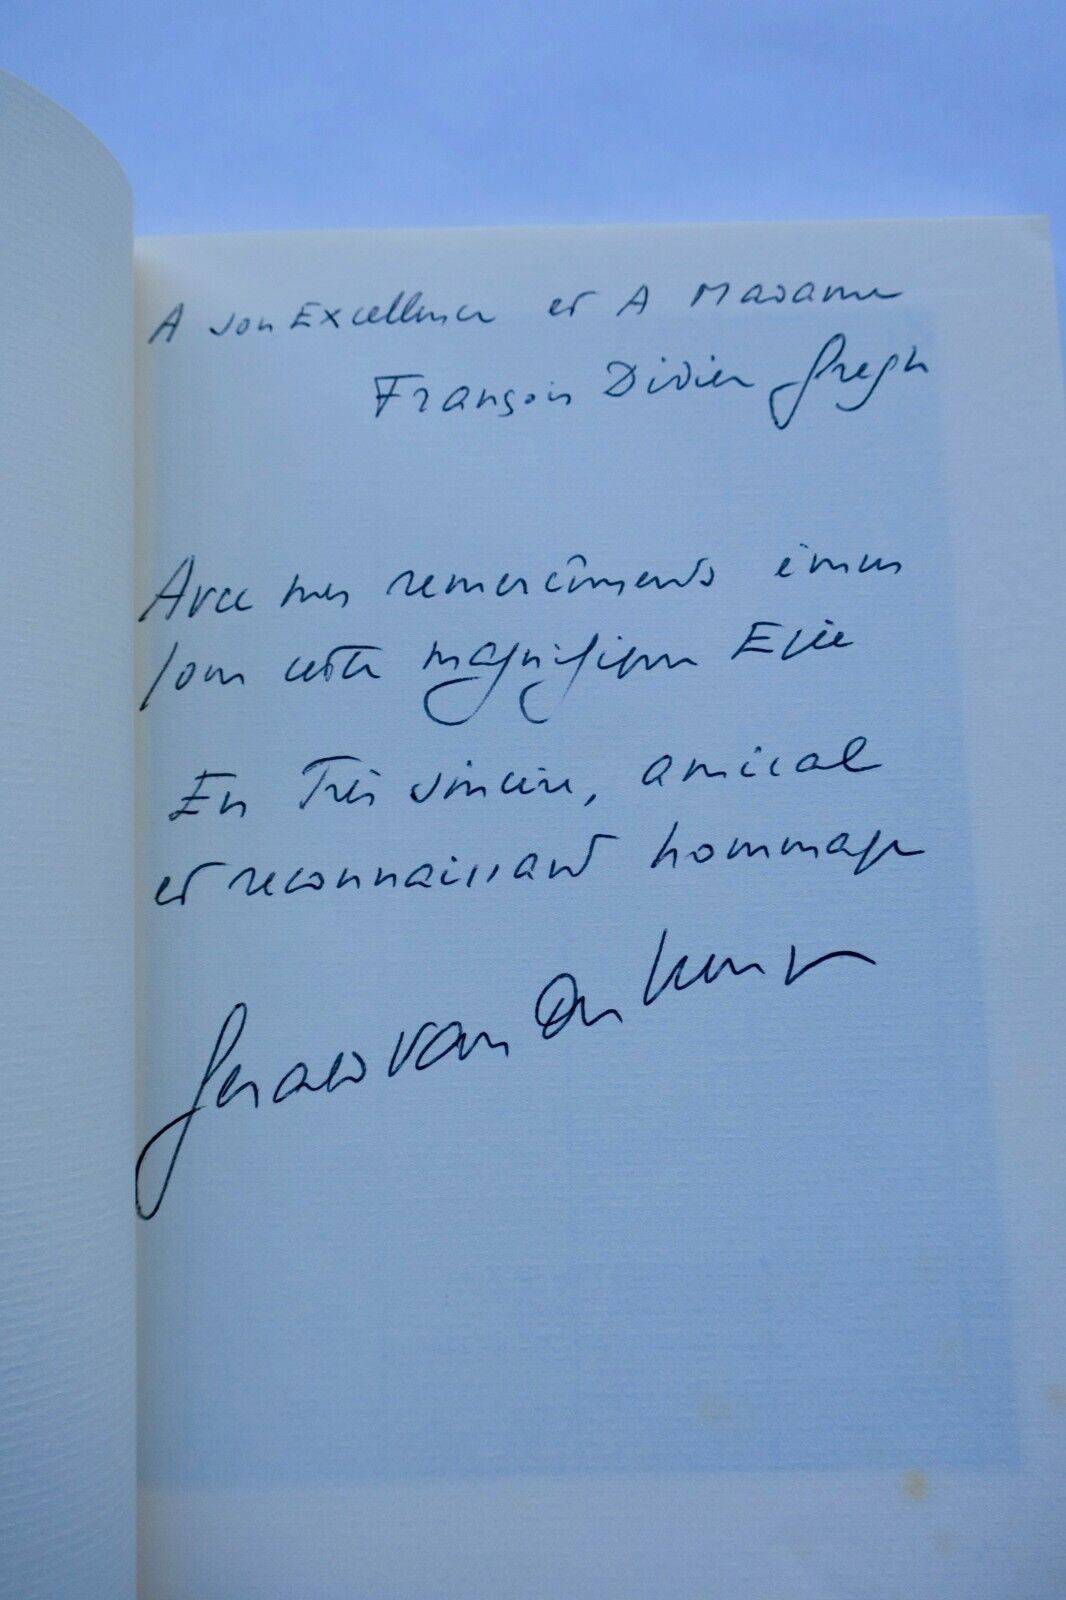 A son Excellence et A Madame
François Didier Gregh
Avec mes remercîments émus
pour cette magnifique Epée
En Très sincère, amical
et reconnaissant hommage
Gérald van der Kemp